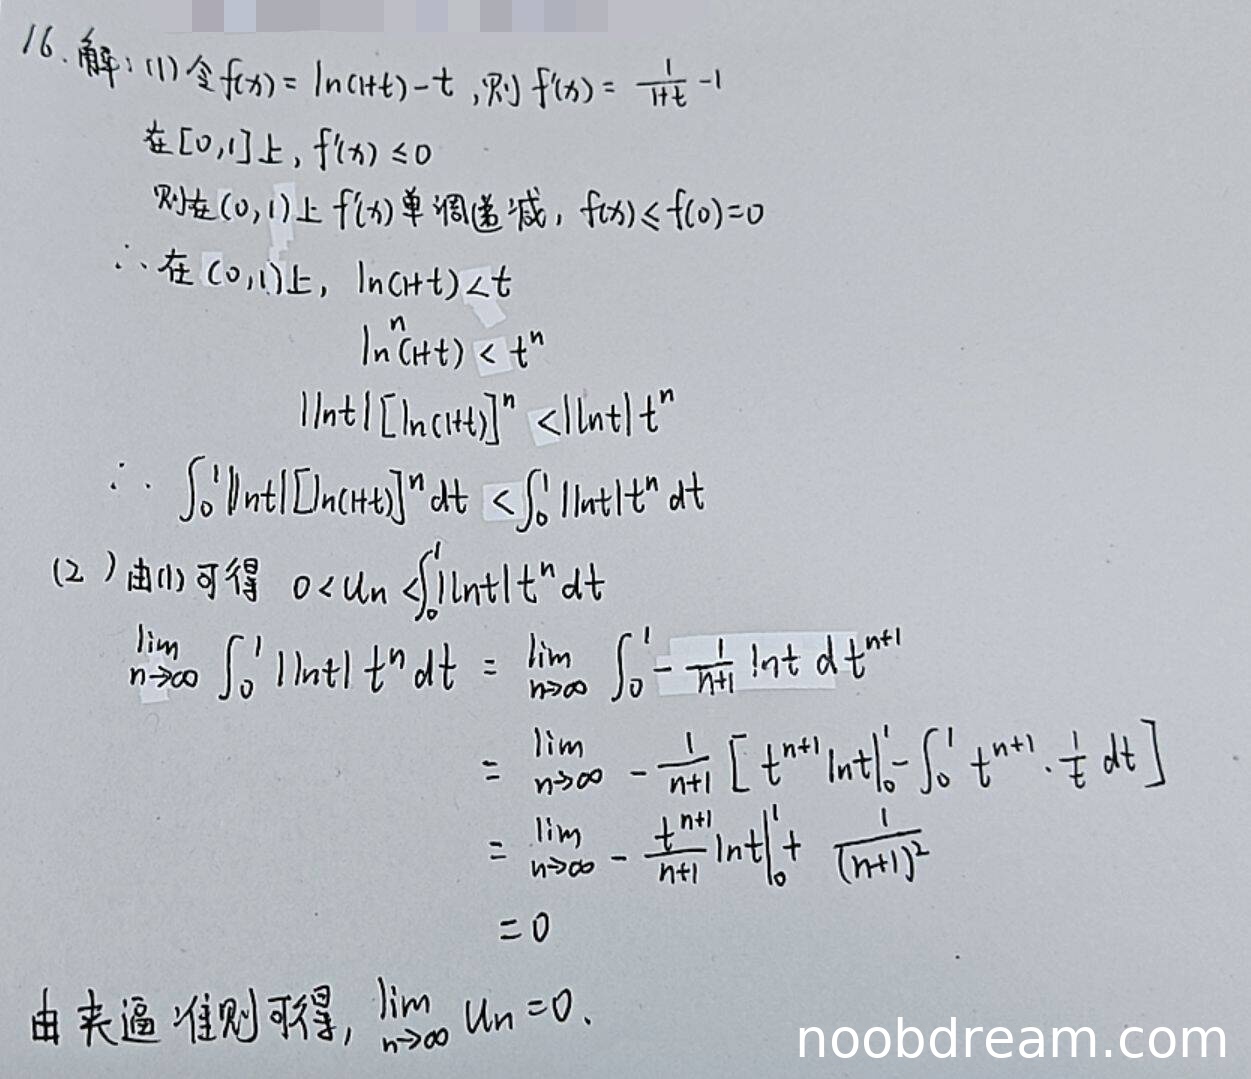 16.解：(1)令f(x)=ln(1+t)-t,则f'(x)=1/(1+t)-1
在[0,1]上,f'(x)≤0
则在(0,1)上f'(x)单调递减,f(x)≤f(0)=0
∴在(0,1)上,ln(1+t)<t
lnⁿ(1+t)<tⁿ
|lnt|[ln(1+t)]ⁿ<|lnt|tⁿ
∴∫₀¹|lnt|[ln(1+t)]ⁿdt<∫₀¹|lnt|tⁿdt
(2)由(1)可得 0<Un<∫₀¹|lnt|tⁿdt
lim n→∞ ∫₀¹|lnt|tⁿdt=lim n→∞ ∫₀¹-1/(n+1) lnt dtⁿ⁺¹
=lim n→∞ -1/(n+1)[tⁿ⁺¹lnt|₀¹-∫₀¹tⁿ⁺¹·1/t dt]
=lim n→∞ -tⁿ⁺¹/(n+1) lnt|₀¹+1/(n+1)²
=0
由夹逼准则可得,lim n→∞ Un=0.
noobdream.com